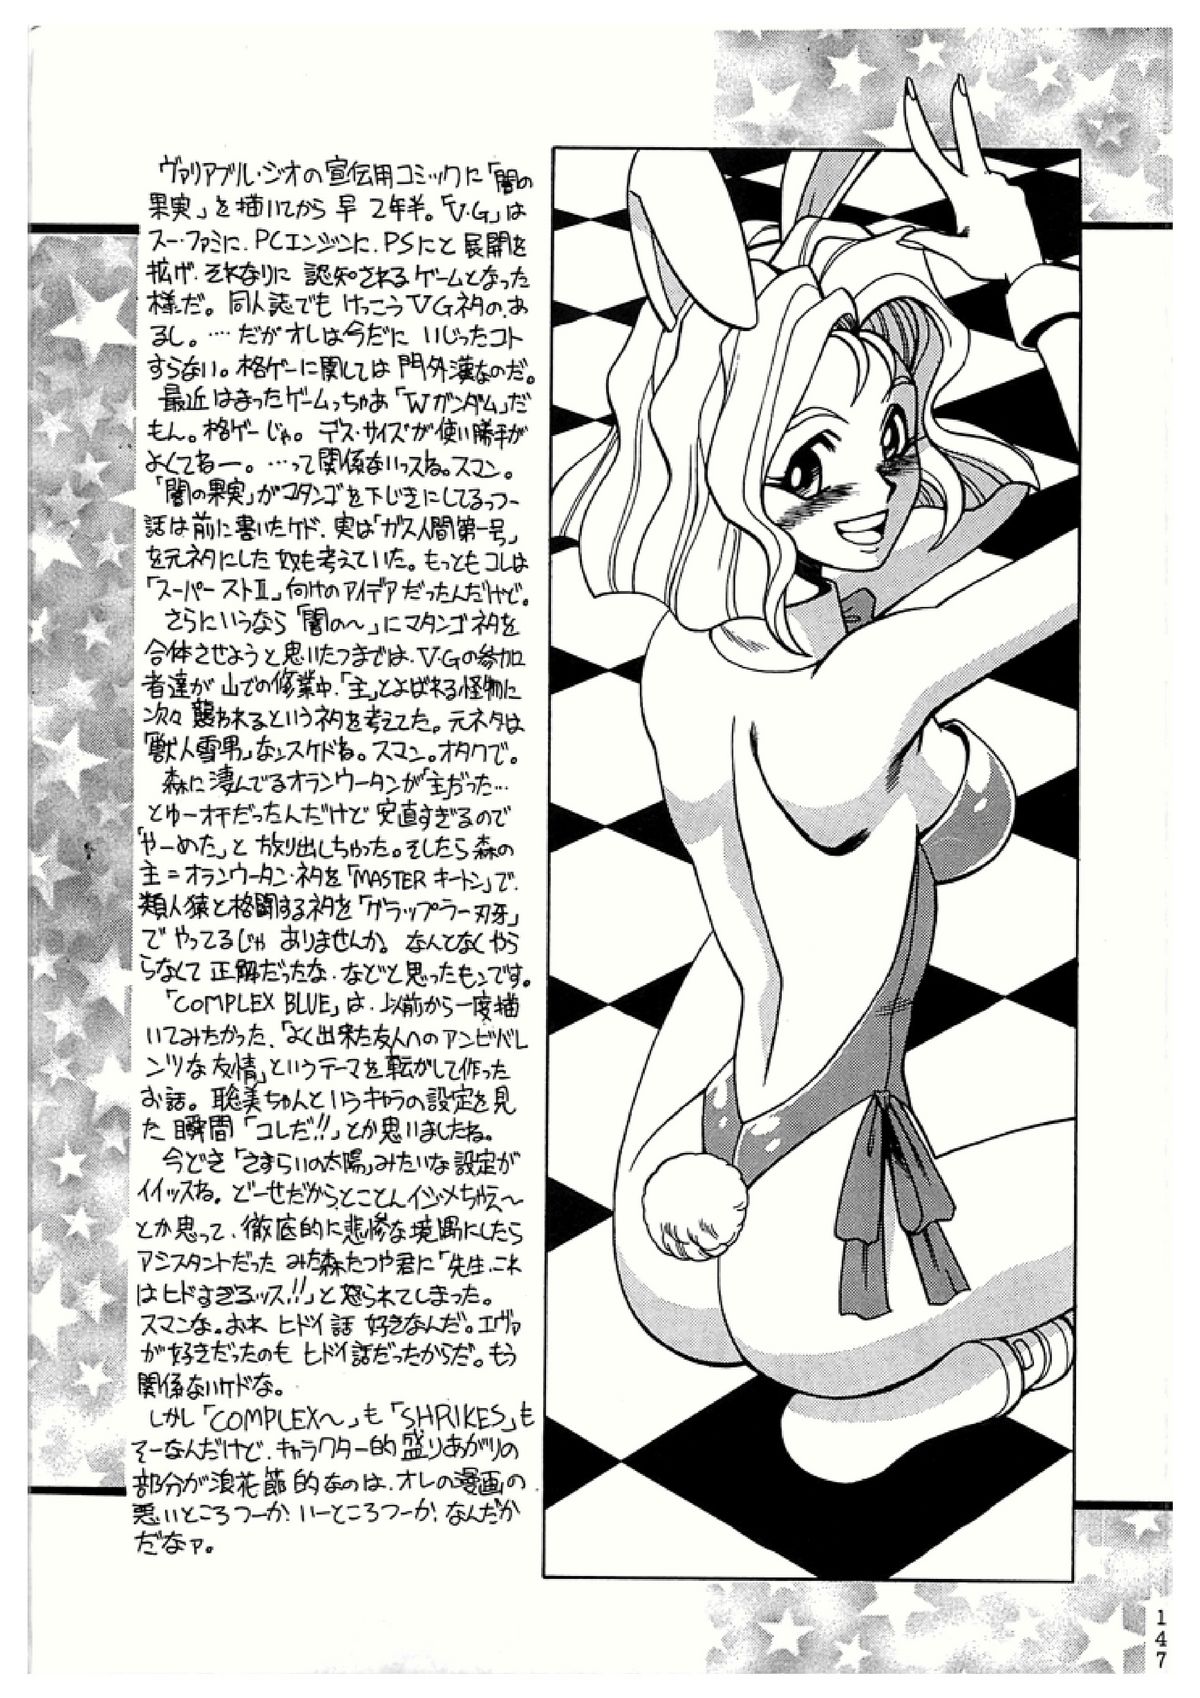 ヴァリアブル・ジオの宣伝用コミックに「闇の
果実」を描いてから早2年半。「V.G」は
スー・ファミに、PCエンジンに、PSにと展開を
拡げ、それなりに認知されるゲームとなった
様だ。同人誌でもけっこうV.Gネタのあ
るし。‥‥だがオレは今だにいじったコト
すらない。格ゲーに関しては門外漢なのだ。
最近はまったゲームっちゃあ「Wガンダム」だ
もん。格ゲーじゃ。デス・サイズが使い勝手が
よくてねー。‥‥って関係ないっスね。スマン。
「闇の果実」がマタンゴを下じきにしてるっつー
話は前に書いたケド、実は「ガス人間第一号」
を元ネタにした奴も考えていた。もっともコレは
「スーパーストⅡ」向けのアイデアだったんだけど。
さらにいうなら「闇の〜」にマタンゴネタを
合体させようと思いたつまでは、V.Gの参加
者達が山での修業中、「主」とよばれる怪物に
次々襲われるというネタを考えてた。元ネタは
「獣人雪男」なンスケドね。スマン。オタクで。
森に凄んでるオランウータンが「主」だった‥‥
とゆーオチだったんだけど安直すぎるので
「やーめた」と放り出しちゃった。そしたら森の
主=オランウータン・ネタを「MASTERキートン」で、
類人猿と格闘するネタを「グラップラー刃牙」
でやってるじゃありませんか。なんとなくやら
らなくて正解だったな、などと思ったもンです。
「COMPLEX BLUE」は、以前から一度描
いてみたかった、「よく出来た友人へのアンビバレ
ンツな友情」というテーマを転がして作った
お話。聡美ちゃんというキャラの設定を見
た瞬間「コレだ!!」とか思いましたね。
今どき「さすらいの太陽」みたいな設定が
イイッスね。どーせだからとことんイジメちゃえ〜
とか思って、徹底的に悲惨な境遇にしたら
アシスタントだったみた森たつや君に「先生、これ
はヒドすぎるッス!!」と怒られてしまった。
スマンな。おれヒドイ話好きなんだ。エヴァ
が好きだったのもヒドイ話だったからだ。もう
関係ないケドな。
しかし「COMPLEX〜」も「SHRIKES」も
そーなんだけど、キャラクター的盛りあがりの
部分が浪花節的なのは、オレの漫画の
悪いところつーか、いーところつーか、なんだか
だなァ。
147